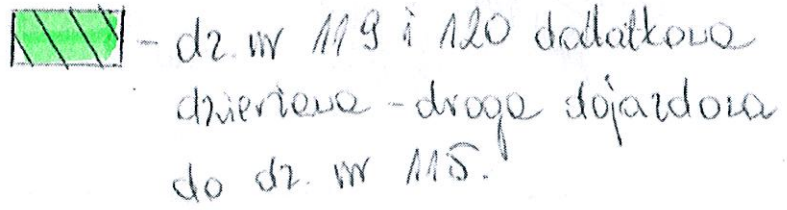 - dz. nr 119 i 120 dodatkowa
dzierżawa - droga dojazdowa
do dz. nr 115.